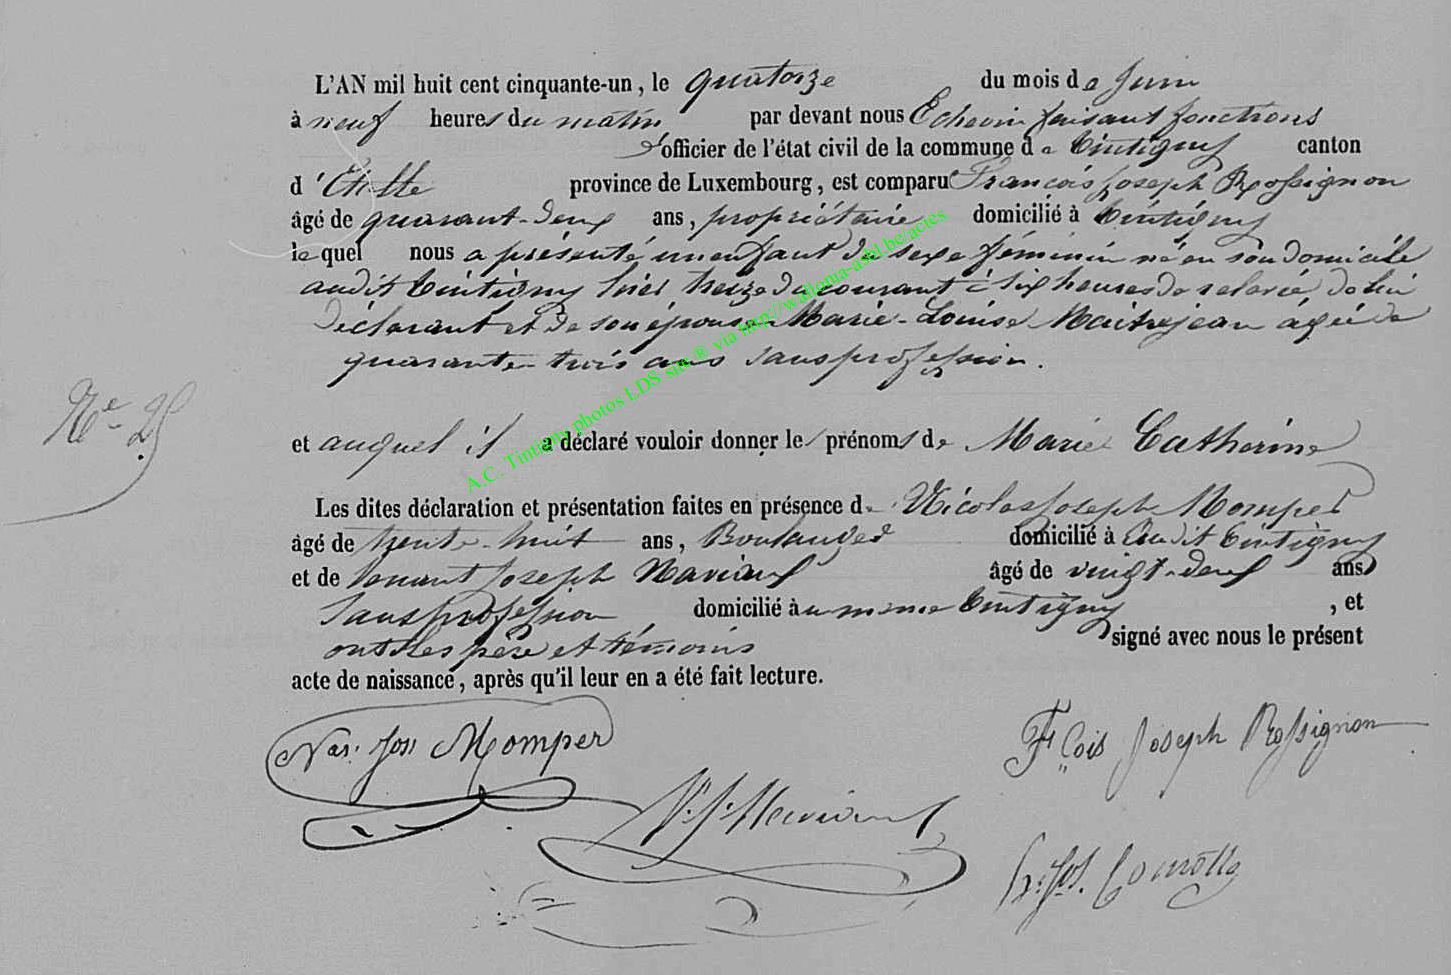 L'AN mil huit cent cinquante-un, le quatorze du mois de Juin
à neuf heures du matin par devant nous Echevin faisant fonctions
d'officier de l'état civil de la commune de Tintigny canton
d'Etalle province de Luxembourg, est comparu François Joseph Rossignon
âgé de quarant-deux ans, propriétaire domicilié à Tintigny
lequel nous a présenté un enfant de sexe féminin né en son domicile
audit Tintigny hier treize du courant à six heures de relevée, de lui
déclarant et de son épouse Marie-Louise Maitrejean agée de
quarante-trois ans sans profession.
N° 25
et auquel il a déclaré vouloir donner les prénoms de Marie Catherine
Les dites déclaration et présentation faites en présence de Nicolas Joseph Momper
âgé de trente-huit ans, Boulanger domicilié à Audit Tintigny
et de Joseph âgé de vingt-deux ans
sans profession domicilié à u même Tintigny, et
ont les père et témoins signé avec nous le présent
acte de naissance, après qu'il leur en a été fait lecture.
Nas. Jos Momper
Fçois Joseph Rossignon
A.C. Tintigny photos LDS site ® via http://wallonia-asbl.be/actes